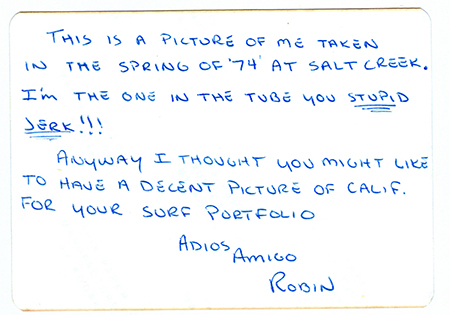 THIS IS A PICTURE OF ME TAKEN
IN THE SPRING OF '74' AT SALT CREEK.
I'm THE ONE IN THE TUBE YOU STUPID
JERK!!!
ANYWAY I THOUGHT YOU MIGHT LIKE
TO HAVE A DECENT PICTURE OF CALIF.
FOR YOUR SURF PORTFOLIO
ADIOS
AMIGO
ROBIN